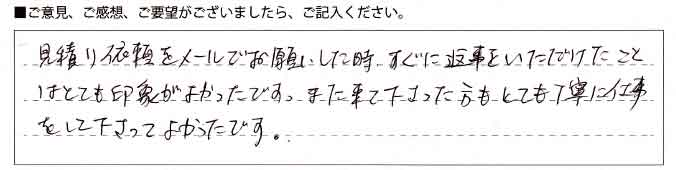 ■ご意見、ご感想、ご要望がございましたら、ご記入ください。
見積り依頼をメールでお願いした時、すぐに返事をいただけたこと
はとても印象がよかったです。また来て下さった方もとても丁寧に仕事
をして下さってよかったです。